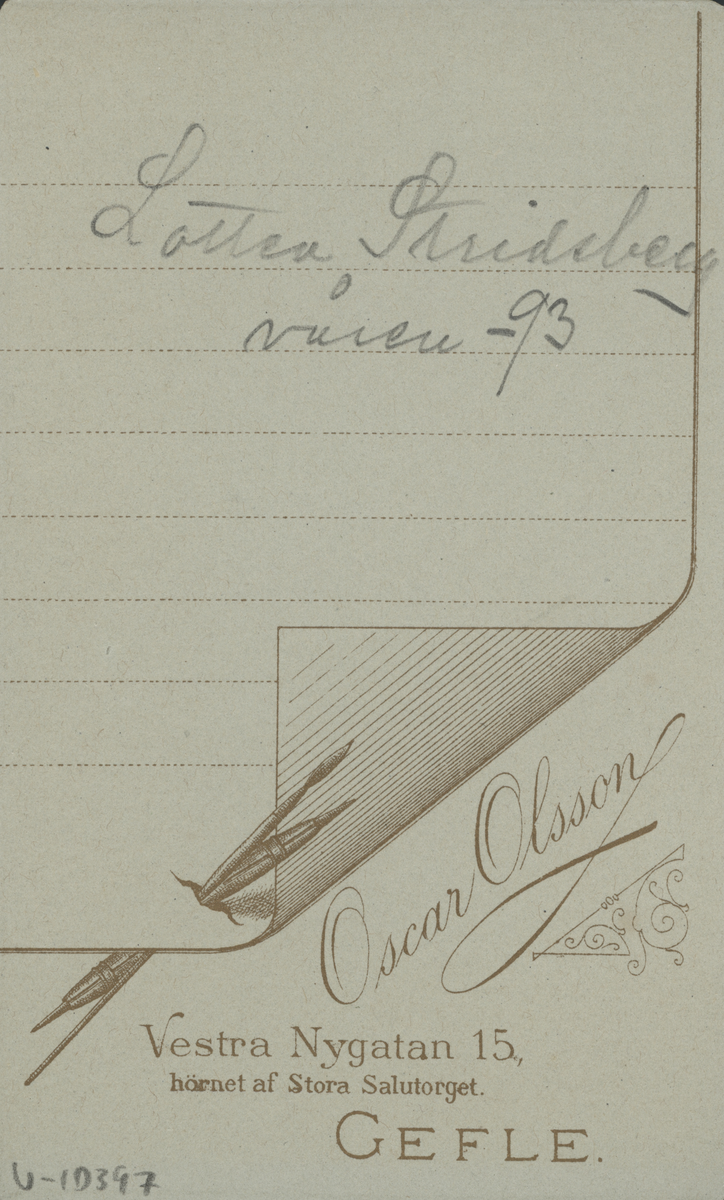 Lotten Stridsberg
våren -93
Oscar Olsson
Vestra Nygatan 15,
hörnet af Stora Salutorget.
GEFLE.
U-10397